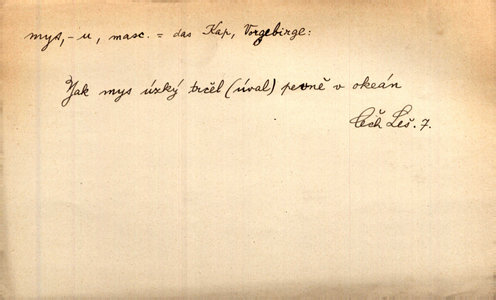 mys, -u, masc. = das Kap, Vorgebirge:
Jak mys úzký trčel (úval) pevně v okeán
Čech Leš. 7.